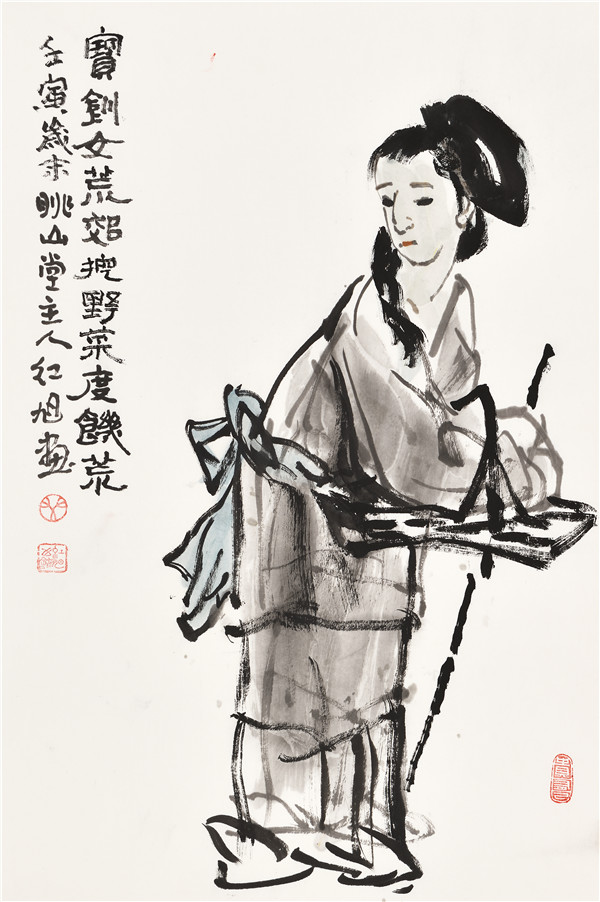 寶釧女荒郊挖野菜度饑荒
壬寅歲末眺山堂主人紅旭畫